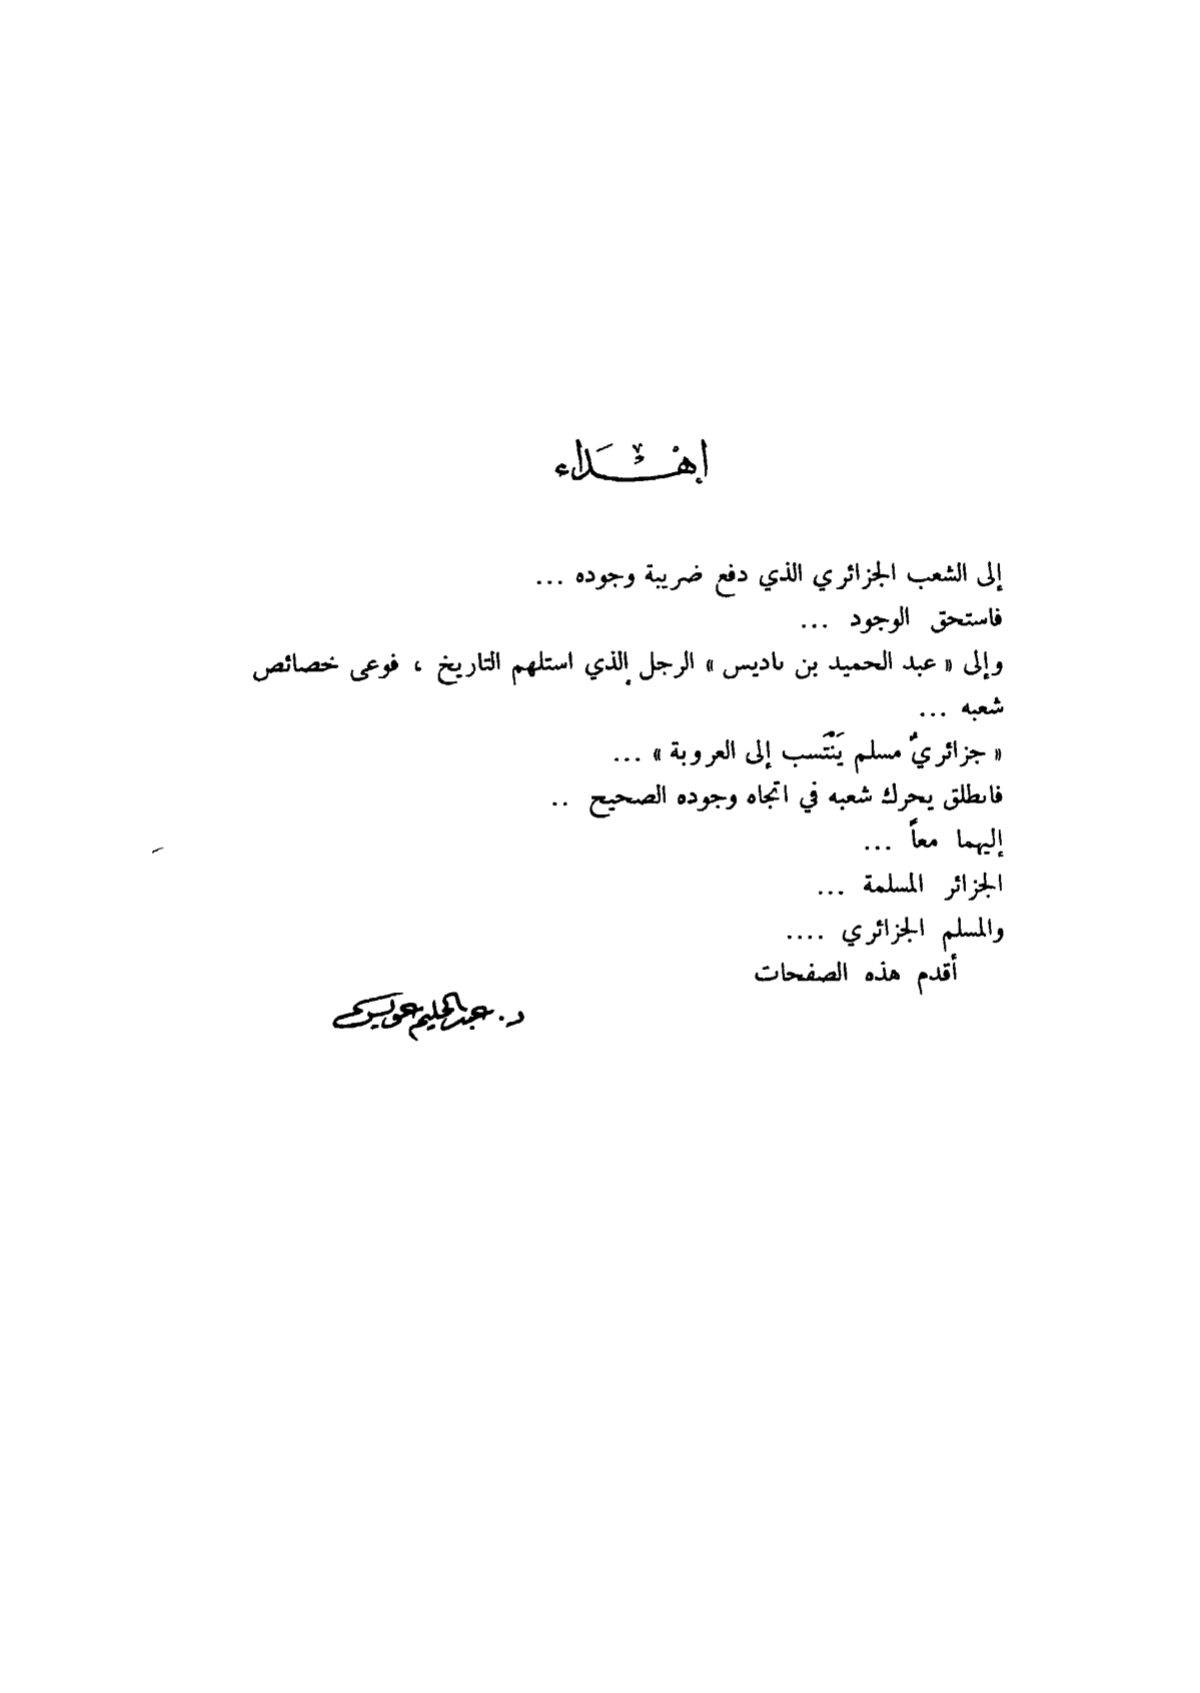 إهْـدَاء
إلى الشعب الجزائري الذي دفع ضريبة وجوده ...
فاستحق الوجود ...
وإلى « عبد الحميد بن باديس » الرجل الذي استلهم التاريخ ، فوعى خصائص
شعبه ...
« جزائريٌ مسلم يَنْتَسب إلى العروبة » ...
فانطلق يحرك شعبه في اتجاه وجوده الصحيح ..
إليهما معاً ...
الجزائر المسلمة ...
والمسلم الجزائري ....
أقدم هذه الصفحات
د. عبد الحليم عويس